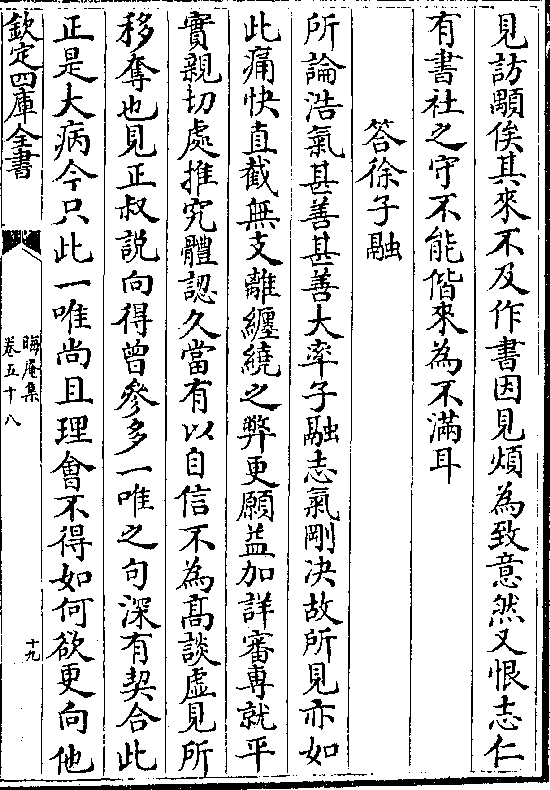 見訪顒俟其來不及作書因見煩為致意然又恨志仁
有書社之守不能偕來為不滿耳
答徐子融
所論浩氣甚善甚善大率子融志氣剛决故所見亦如
此痛快直截無支離纏繞之弊更願益加詳審專就平
實親切處推究體認久當有以自信不為髙談虛見所
移奪也見正叔説向得曾參多一唯之句深有契合此
正是大病今只此一唯尚且理會不得如何欲更向他
欽定四庫全書
晦庵集
卷五十八
十九